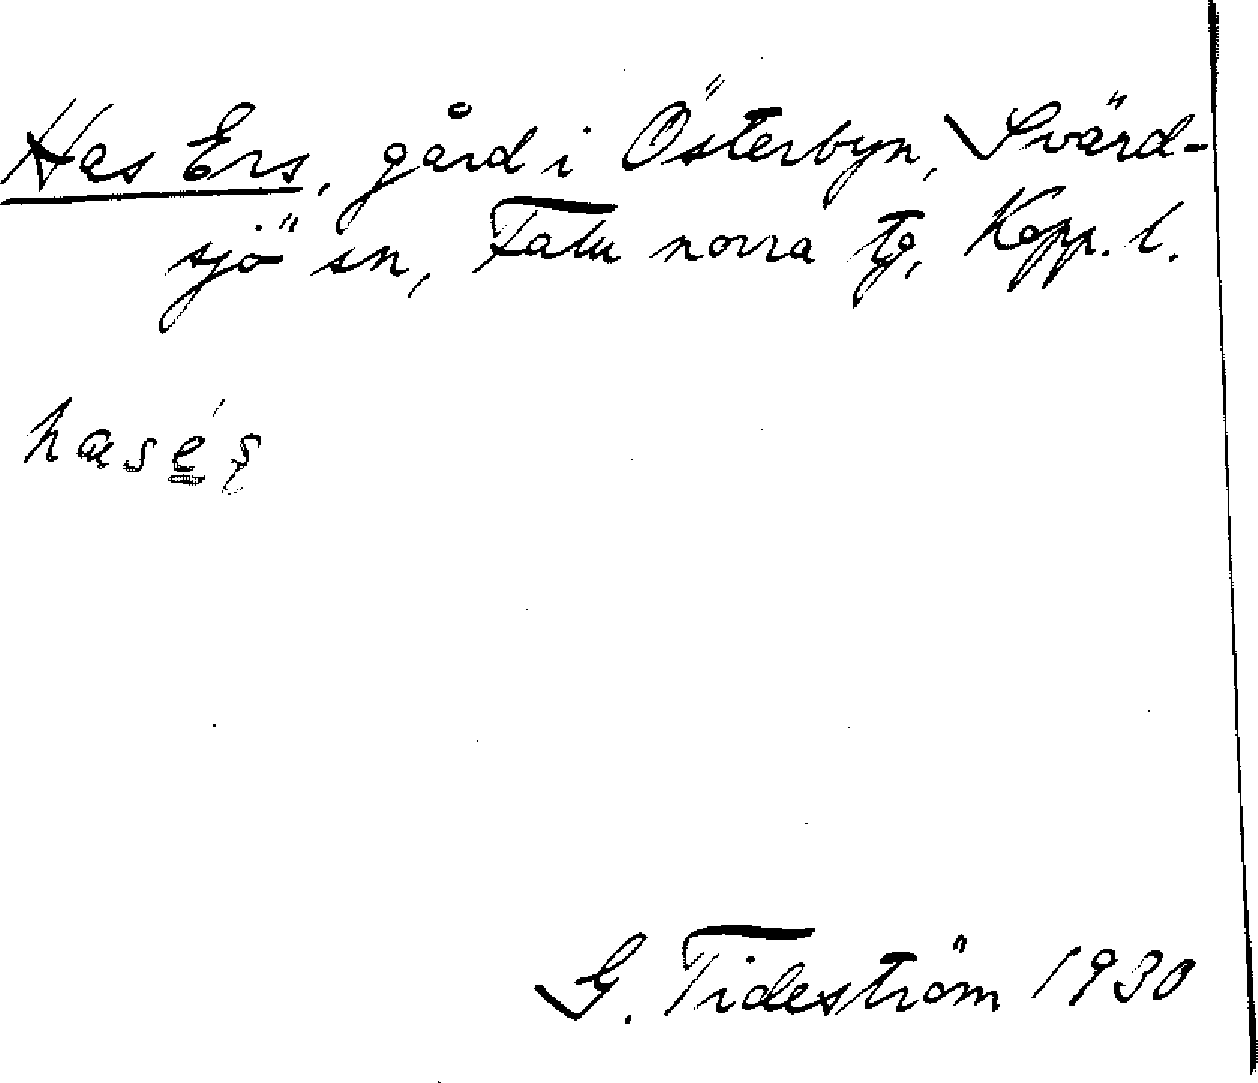 Has Ers, gård i Österbyn, Svärd-
sjö sn, Falu norra tg, Kopp. l.
hasés
G. Tideström 1930